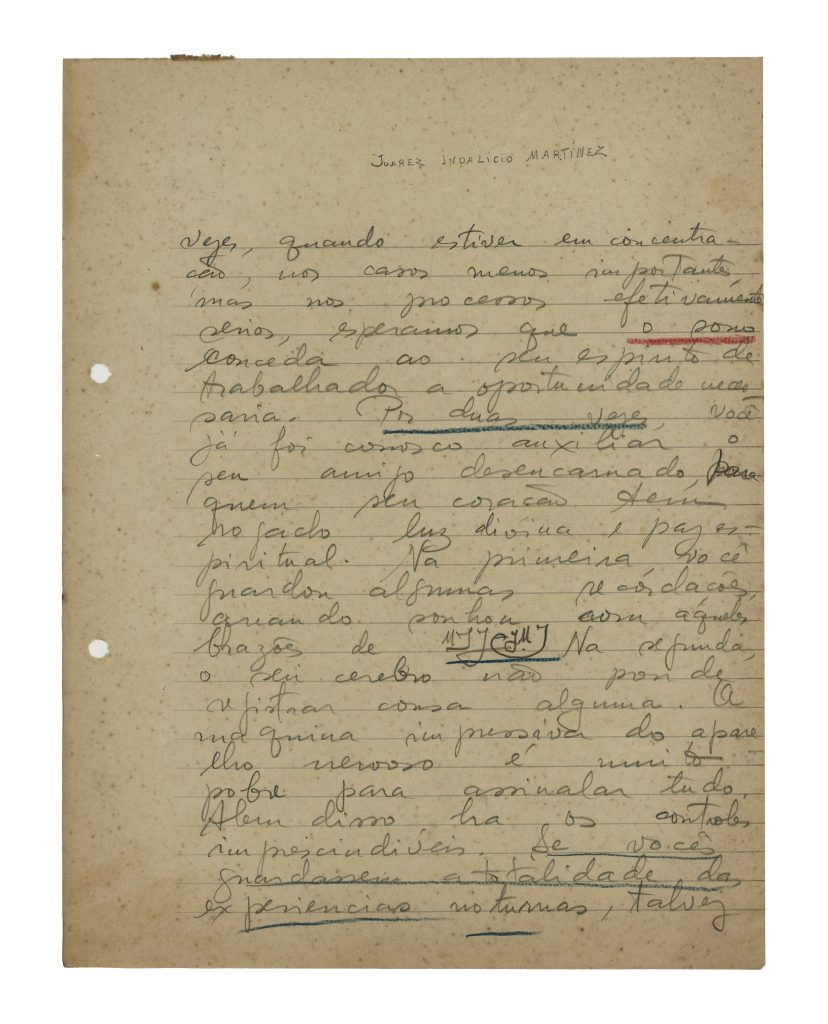 JUAREZ INDALICIO MARTÍNEZ
vezes, quando estiver em concentra-
ção, nos casos menos importantes,
mas nos processos efetivamente
serios, esperamos que o sono
conceda ao seu espirito de
trabalhador a oportunidade neces
saria. Por duas vezes, você
já foi conosco auxiliar o
seu amigo desencarnado, para
quem seu coração tem
rogado luz divina e paz es-
piritual. Na primeira, você
guardou algumas recordações,
quando sonhou com aqueles
brazões de Na segunda,
o seu cerebro não poude
registrar cousa alguma. A
maquina impressiva do apare
lho nervoso é muito
pobre para assinalar tudo.
Alem disso ha os controles
imprescindiveis. Se vocês
guardassem a totalidade das
experiencias noturnas, talvez